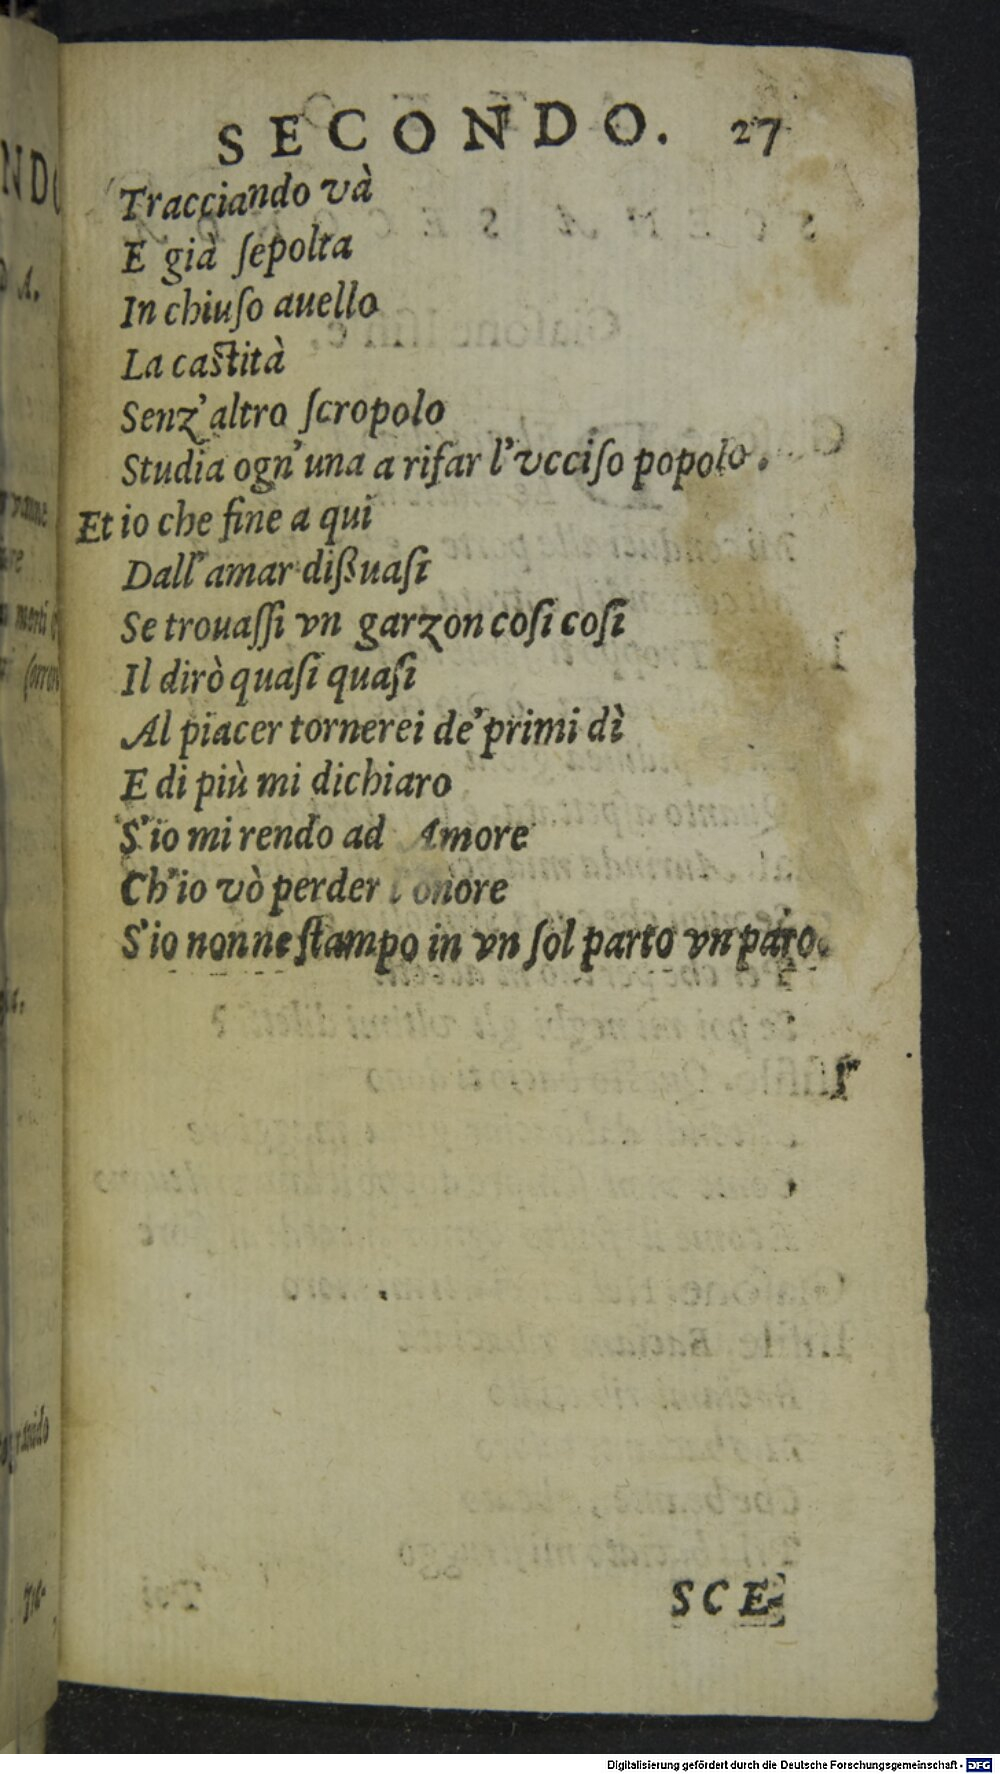 SECONDO. 27
Tracciando và
E già ſepolta
In chiuſo auello
La caſtità
Senz'altro ſcropolo
Studia ogn'una a rifar l'vcciſo popolo.
Et io che fine a qui
Dall'amar dißuaſi
Se trouaſſi vn garzon coſi coſi
Il dirò quaſi quaſi
Al piacer tornerei de' primi dì
E di più mi dichiaro
S'io mi rendo ad Amore
Ch'io vò perder l'onore
S'io non ne ſtampo in vn ſol parto vn paro.
SCE-
Digitalisierung gefördert durch die Deutsche Forschungsgemeinschaft - DFG